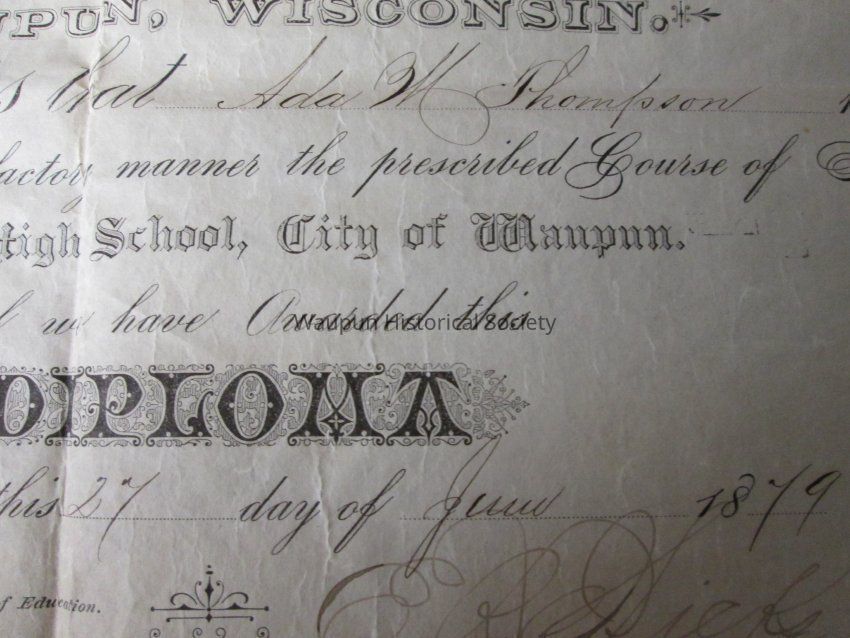 UPUN, WISCONSIN.
s that Ada M Thompson
factory manner the prescribed Course of
High School, City of Waupun.
we have Awarded this
Waupun Historical Society
DIPLOMA
this 27 day of June 1879
of Education.